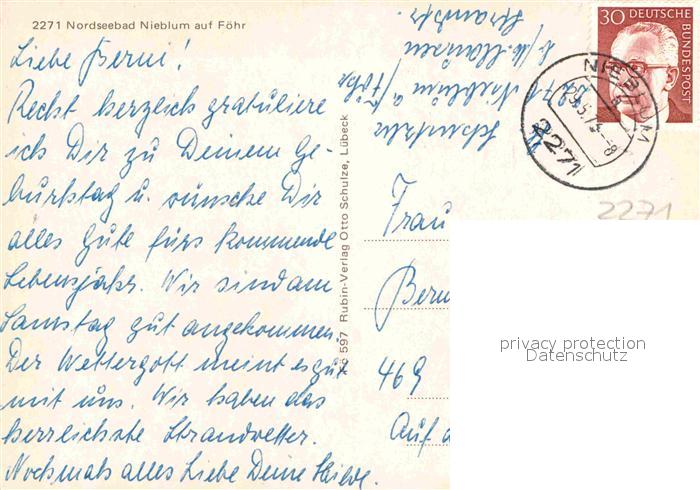 2271 Nordseebad Nieblum auf Föhr
Liebe Berni!
Recht herzlich gratuliere
ich Dir zu Deinem Ge-
burtstag u. wünsche Dir
alles Gute fürs kommende
Lebensjahr. Wir sind am
Samstag gut angekommen.
Der Wettergott meint es gut
mit uns. Wir haben das
herrlichste Strandwetter.
Nochmals alles Liebe Deine Hilde.
2271 Nieblum a/Föhr
Fö 597 Rubin-Verlag Otto Schulze, Lübeck
30 DEUTSCHE
BUNDESPOST
NIEBLUM
2271
2271
Frau
Bern
469
Auf
privacy protection
Datenschutz